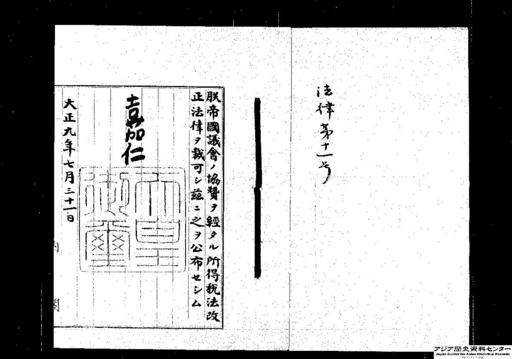 法律第十一号
朕帝國議會ノ協贊ヲ經タル所得税法改
正法律ヲ裁可シ茲ニ之ヲ公布セシム
嘉仁
天皇
御璽
大正九年七月三十一日
内閣
アジア歴史資料センター
Japan Center for Asian Historical Records